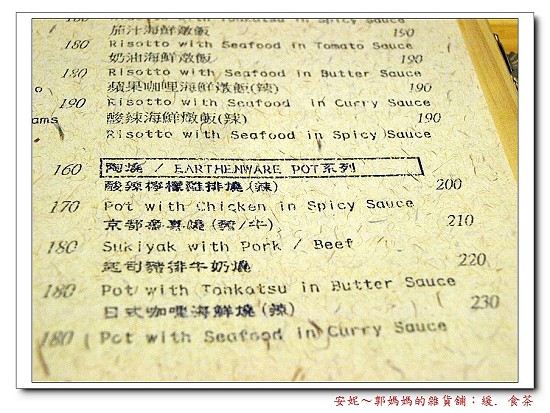 Risotto with Tonkatsu in Spicy Sauce
茄汁海鮮燉飯 190
180 Risotto with Seafood in Tomato Sauce
奶油海鮮燉飯 190
180 Risotto with Seafood in Butter Sauce
蘋果咖哩海鮮燉飯(辣) 190
190 Risotto with Seafood in Curry Sauce
酸辣海鮮燉飯(辣) 190
Risotto with Seafood in Spicy Sauce
160 陶燒 / EARTHENWARE POT系列
酸辣檸檬雞排燒(辣) 200
170 Pot with Chicken in Spicy Sauce
京都壽喜燒(豬/牛) 210
180 Sukiyak with Pork / Beef
起司豬排牛奶燒 220
180 Pot with Tonkatsu in Butter Sauce
日式咖哩海鮮燒(辣) 230
180 Pot with Seafood in Curry Sauce
安妮～郭媽媽的雜貨舖：緩．食茶